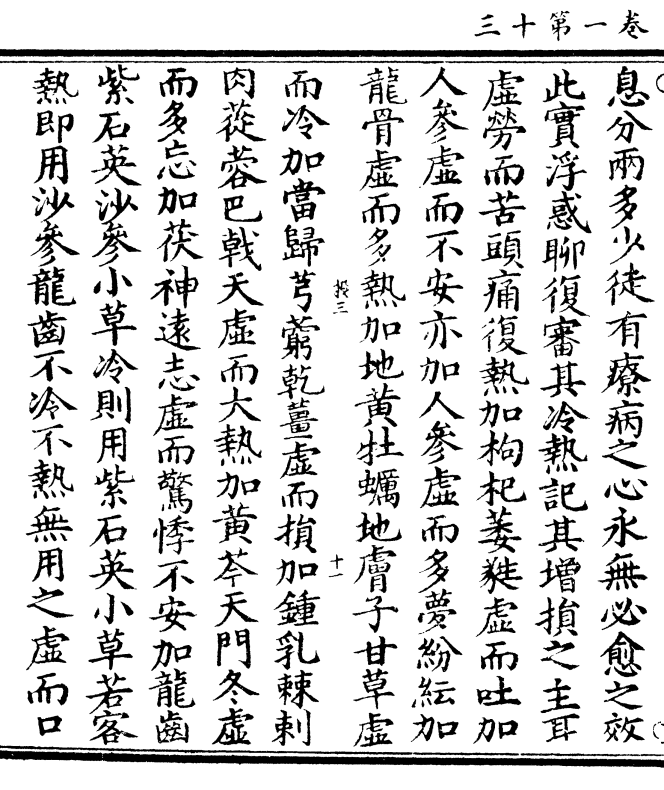 卷一第十三
息分兩多少徒有療病之心永無必愈之效
此實浮惑聊復審其冷熱記其增損之主耳
虛勞而苦頭痛復熱加枸杞萎蕤虛而吐加
人參虛而不安亦加人參虛而多夢紛紜加
龍骨虛而多熱加地黃牡蠣地膚子甘草虛
投三
十一
而冷加當歸芎藭乾薑虛而損加鍾乳棘刺
肉蓯蓉巴戟天虛而大熱加黃芩天門冬虛
而多忘加茯神遠志虛而驚悸不安加龍齒
紫石英沙參小草冷則用紫石英小草若客
熱即用沙參龍齒不冷不熱無用之虛而口